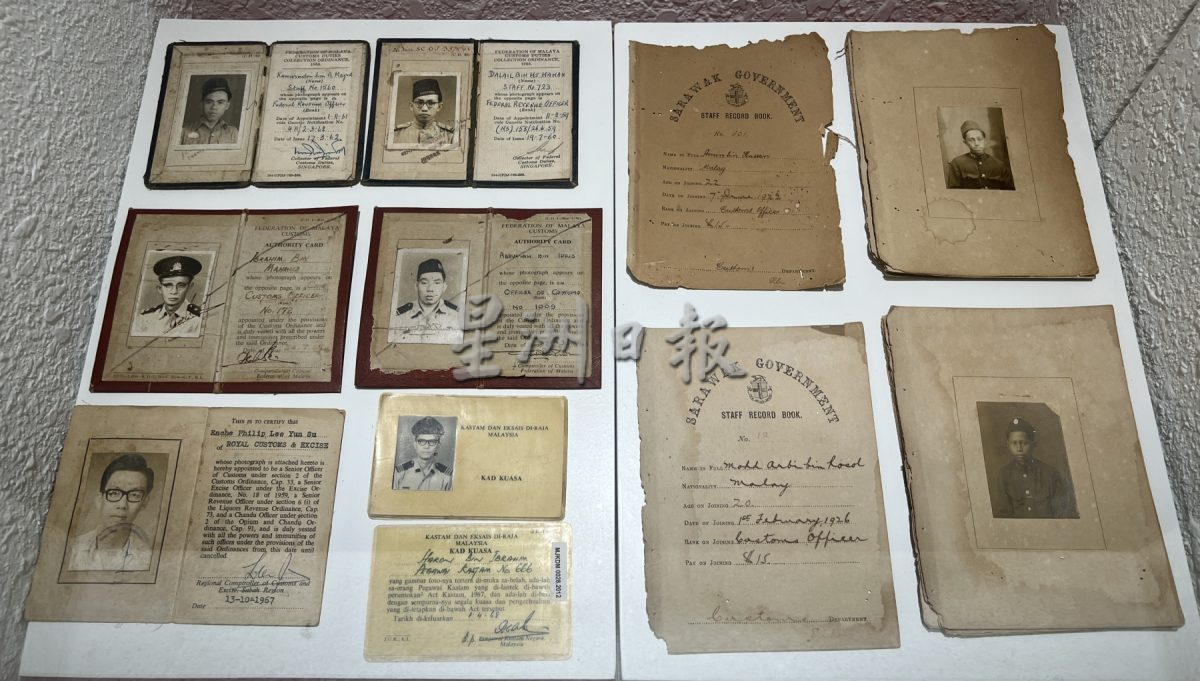 FEDERATION OF MALAYA
CUSTOMS DUTIES
COLLECTION ORDINANCE,
Kamarudin bin A. Majid
(Name)
Staff No. 1260
whose photograph appears on
the opposite page is
Federal Revenue Officer
(Rank)
Date of Appointment 1-11-61
vide Gazette Notification No.
Date of Issue 17-3-62
Collector of Federal
Customs Duties,
SINGAPORE.
FEDERATION OF MALAYA
CUSTOMS DUTIES
COLLECTION ORDINANCE,
DALAIL BIN
(Name)
STAFF No. 723
whose photograph appears on
the opposite page is
FEDERAL REVENUE OFFICER
(Rank)
Date of Appointment
vide Gazette Notification No.
Date of Issue 19-7-60
Collector of Federal
Customs Duties,
SINGAPORE.
FEDERATION OF MALAYA
CUSTOMS
AUTHORITY CARD
IBRAHIM BIN
whose photograph appears on
the opposite page, is a
CUSTOMS OFFICER
appointed under the provisions
of the Customs Ordinance and
is duly vested with all the powers
and immunities prescribed under
the said Ordinance.
Comptroller of Customs
Federation of Malaya
FEDERATION OF MALAYA
CUSTOMS
AUTHORITY CARD
ABDULLAH BIN IDRIS
whose photograph appears on
the opposite page, is an
OFFICER OF CUSTOMS
No 1009
appointed under the provisions
of the Customs Ordinance and
is duly vested with all the powers
and immunities prescribed under
the said Ordinance.
Comptroller of Customs
Federation of Malaya
THIS IS TO CERTIFY that
Enche Philip Lee Yun Su
of ROYAL CUSTOMS & EXCISE
whose photograph is attached hereto is
hereby appointed to be a Senior Officer
of Customs under section 2 of the
Customs Ordinance, Cap. 33, a Senior
Excise Officer under the Excise Or-
dinance, No. 18 of 1959, a Senior
Revenue Officer under section 6 (i) of
the Liquors Revenue Ordinance, Cap.
73, and a Chandu Officer under section
2 of the Opium and Chandu Or-
dinance, Cap. 91, and is duly vested
with all the powers and immunities of
such officer under the provisions of the
said Ordinances from this date until
cancelled.
Regional Comptroller of Customs and
Excise Sabah Region
Date 13-10-1967
KASTAM DAN EKSAIS DI-RAJA
MALAYSIA
KAD KUASA
KASTAM DAN EKSAIS DI-RAJA
MALAYSIA
KAD KUASA
HARON BIN IBRAHIM
PEGAWAI KASTAM NO. 666
yang gambar foto-nya tertera di-muka sa-belah, ada-lah
sa-orang Pegawai Kastam yang di-lantek di-bawah
peruntokan² Act Kastam, 1967, dan ada-lah di-beri
dengan sempurna-nya segala kuasa dan pengechualian
yang di-tetapkan di-bawah Act tersebut
Tarikh di-keluarkan 1.4.68
Malaysia
MJKDM 0228.2012
SARAWAK GOVERNMENT
STAFF RECORD BOOK.
No. 101
NAME IN FULL Amin bin Hassan
NATIONALITY Malay
AGE ON JOINING 22
DATE ON JOINING
RANK ON JOINING Customs Officer
PAY ON JOINING $15.
Customs DEPARTMENT.
SARAWAK GOVERNMENT
STAFF RECORD BOOK.
No. 12
NAME IN FULL Mohd Arbi bin Rosol
NATIONALITY Malay
AGE ON JOINING 20.
DATE OF JOINING 1st February, 1926
RANK ON JOINING Customs Officer
PAY ON JOINING $15
Customs DEPARTMENT.
星洲日報